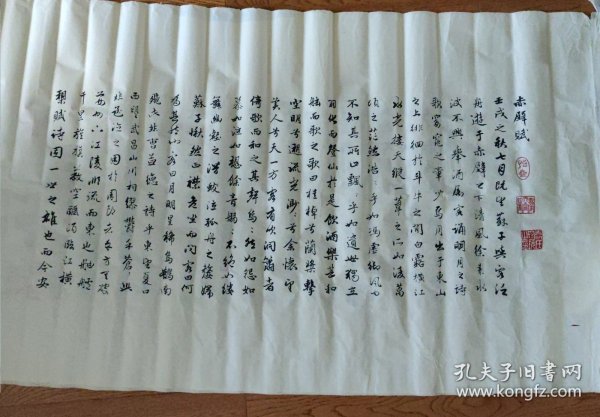 赤壁賦
壬戌之秋七月既望蘇子與客泛
舟遊于赤壁之下清風徐來水
波不興舉酒屬客誦明月之詩
歌窈窕之章少焉月出于東山
之上徘徊於斗牛之間白露橫江
水光接天縱一葦之所如凌萬
頃之茫然浩〻乎如馮虛御風而
不知其所止飄〻乎如遺世獨立
羽化而登仙于是飲酒樂甚扣
舷而歌之歌曰桂棹兮蘭槳擊
空明兮溯流光渺〻兮余懷望
美人兮天一方客有吹洞簫者
倚歌而和之其聲嗚〻然如怨如
慕如泣如訴餘音嫋〻不絕如縷
舞幽壑之潛蛟泣孤舟之嫠婦
蘇子愀然正襟危坐而問客曰何
為其然也客曰月明星稀烏鵲南
飛此非曹孟德之詩乎東望夏口
西望武昌山川相繆鬱乎蒼〻此
非孟德之困於周郎者乎方其破
荊州下江陵順流而東也舳艫
千里旌旗蔽空釃酒臨江橫
槊賦詩固一世之雄也而今安
孔夫子旧书网
www.kongfz.com